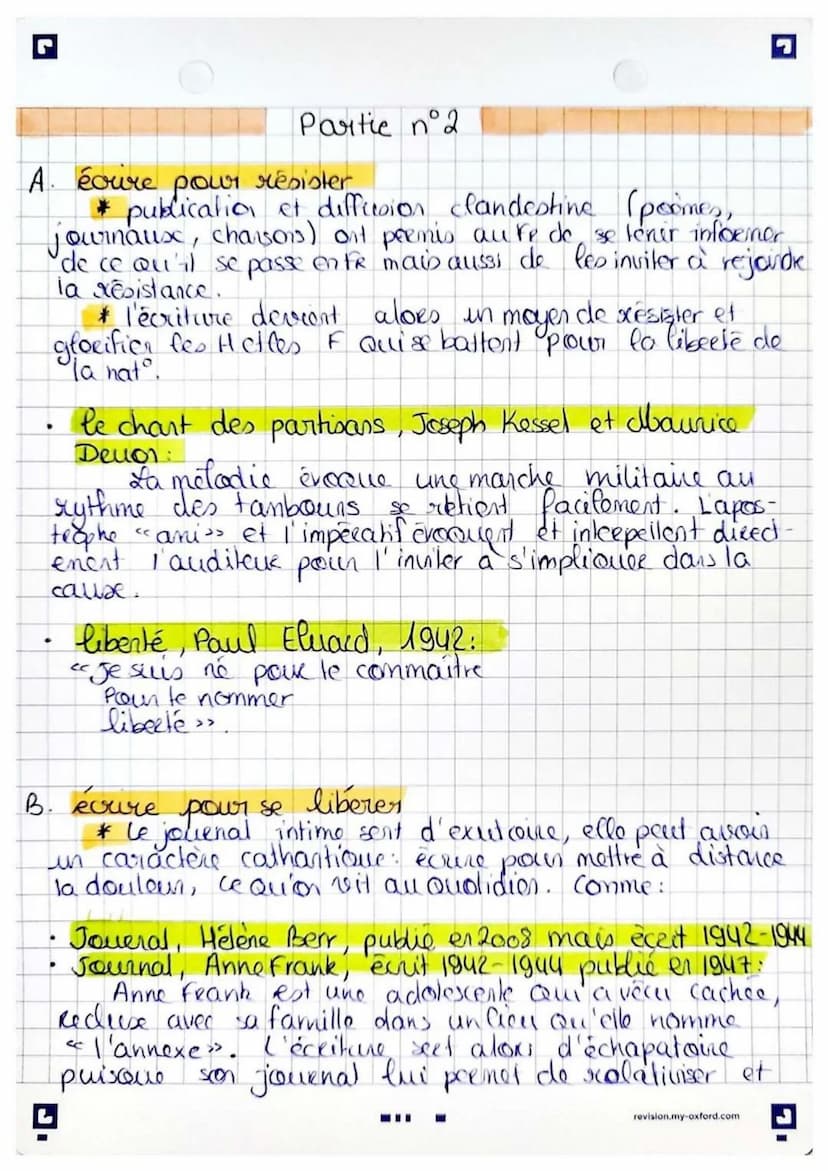 Partie n°2
A. écrire pour résister
* publication et diffusion clandestine (poèmes,
journaux, chansons) ont permis au re de se tenir informer
de ce qu'il se passe entre mais aussi de les inviter à rejoindre
la résistance.
* l'écriture devient alors un moyen de résister et
glorifier les H et les F qui se battent pour la liberté de
la nat°.
• le chant des partisans, Joseph Kessel et Maurice
Druon:
La mélodie évoque une marche militaire au
rythme des tambours se retient facilement. L'apos-
trophe «ami» et l'impératif évoquent et interpellent direct-
ement l'auditeur pour l'inviter à s'impliquer dans la
cause.
• liberté, Paul Eluard, 1942:
«Je suis né pour te connaître
Pour te nommer
liberté».
B. écrire pour se libérer
* Le journal intime sert d'exutoire, elle peut avoir
un caractère cathartique: écrire pour mettre à distance
la douleur, ce qu'on vit au quotidien. Comme:
• Journal, Hélène Berr, publié en 2008 mais écrit 1942-1944
• Journal, Anne Frank, écrit 1942-1944 publié en 1947:
Anne Frank est une adolescente qui a vécu cachée,
recluse avec sa famille dans un lieu qu'elle nomme
«l'annexe». L'écriture sert alors d'échapatoire
puisque son journal lui permet de relativiser et
revision.my-oxford.com